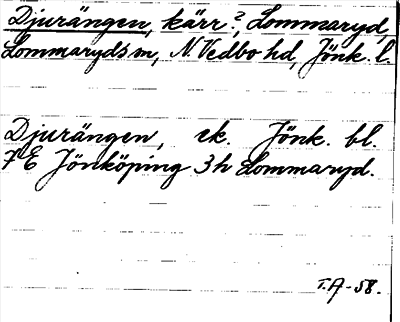 Djurängen, kärr?, Lommaryd,
Lommaryds sn, N. Vedbo hd, Jönk. l.
Djurängen, ek. Jönk. bl.
7E Jönköping 3h Lommaryd.
T.A-58.